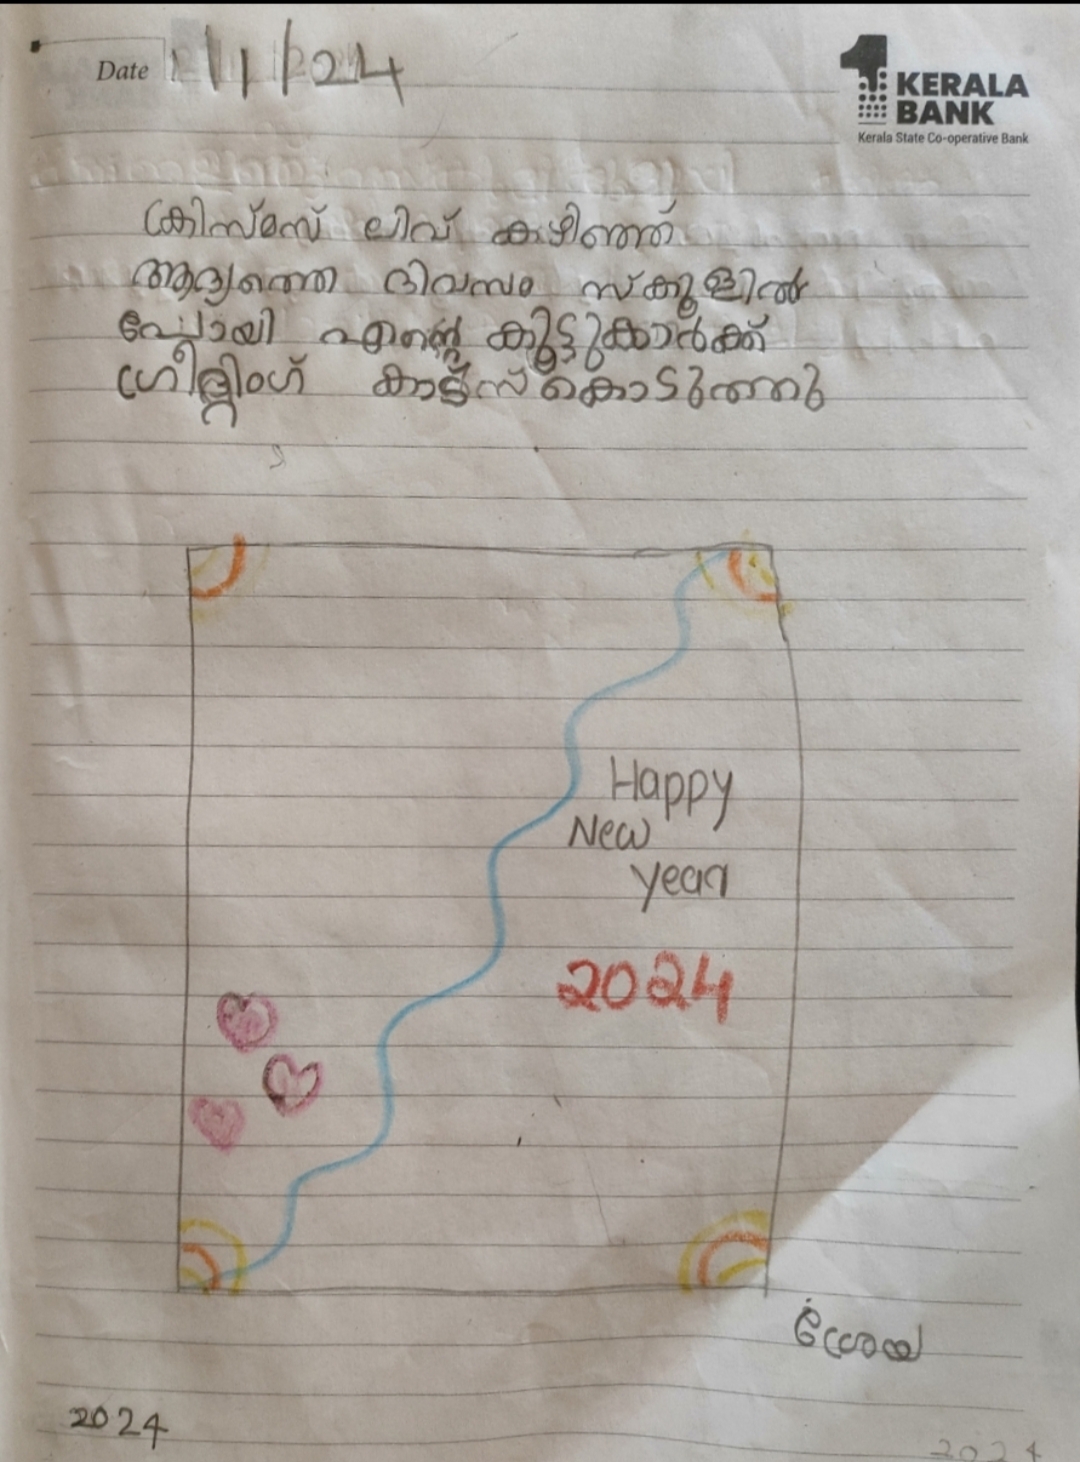 Date 1/1/24
1 KERALA
BANK
Kerala State Co-operative Bank
ക്രിസ്മസ് ലിവ് കഴിഞ്ഞ്
ആദ്യത്തെ ദിവസം സ്കൂളിൽ
പോയി എന്റെ കൂട്ടുകാർക്ക്
ഗ്രീറ്റിംഗ് കാർഡ്സ് കൊടുത്തു
Happy
New
year
2024
ശ്രേയ
2024
2024